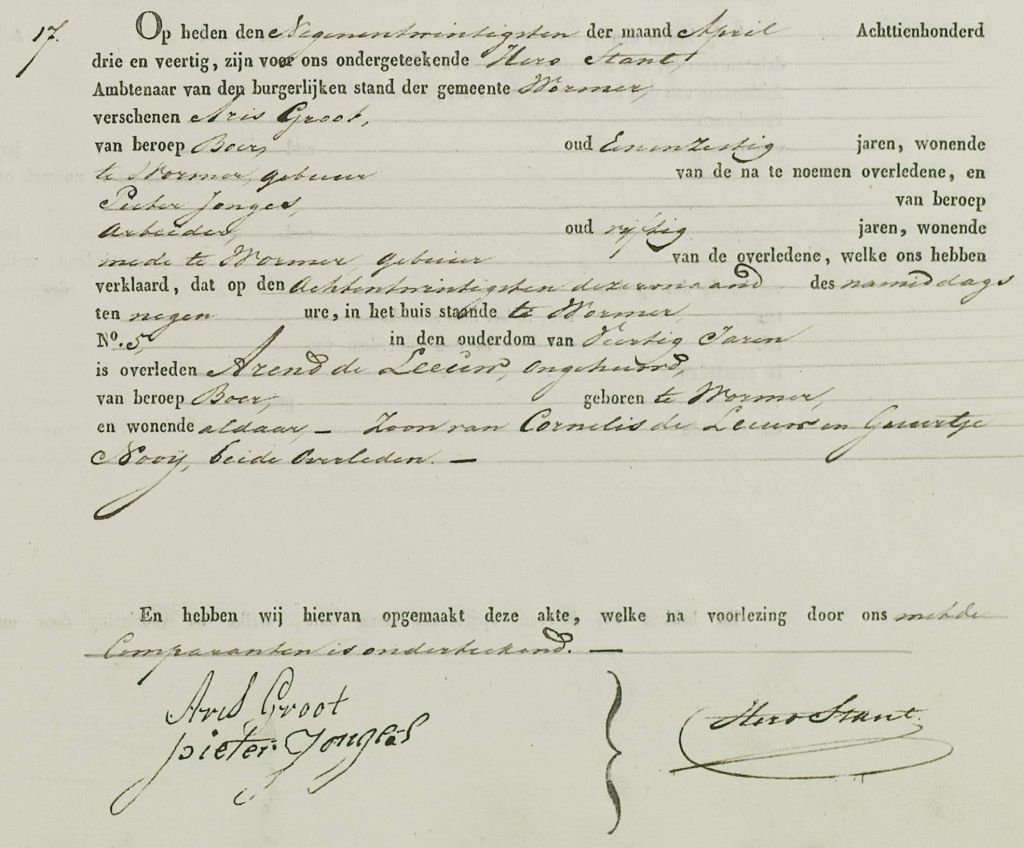 17. Op heden den Negenentwintigsten der maand April Achttienhonderd
drie en veertig, zijn voor ons ondergeteekende Hero Stant,
Ambtenaar van den burgerlijken stand der gemeente Wormer,
verschenen Aris Groot,
van beroep Boer, oud Eenenzestig jaren, wonende
te Wormer, gebuur van de na te noemen overledene, en
Pieter Jonges, van beroep
Arbeider, oud vijftig jaren, wonende
mede te Wormer, gebuur van de overledene, welke ons hebben
verklaard, dat op den Achtentwintigsten dezer maand des namiddags
ten negen ure, in het huis staande te Wormer,
No. 5, in den ouderdom van Veertig Jaren
is overleden Arend de Leeuw, ongehuwd,
van beroep Boer, geboren te Wormer,
en wonende aldaar, — Zoon van Cornelis de Leeuw en Guurtje
Nooij, beide Overleden. —
En hebben wij hiervan opgemaakt deze akte, welke na voorlezing door ons met de
Comparanten is onderteekend. —
Aris Groot
pieter Jonges
Hero Stant